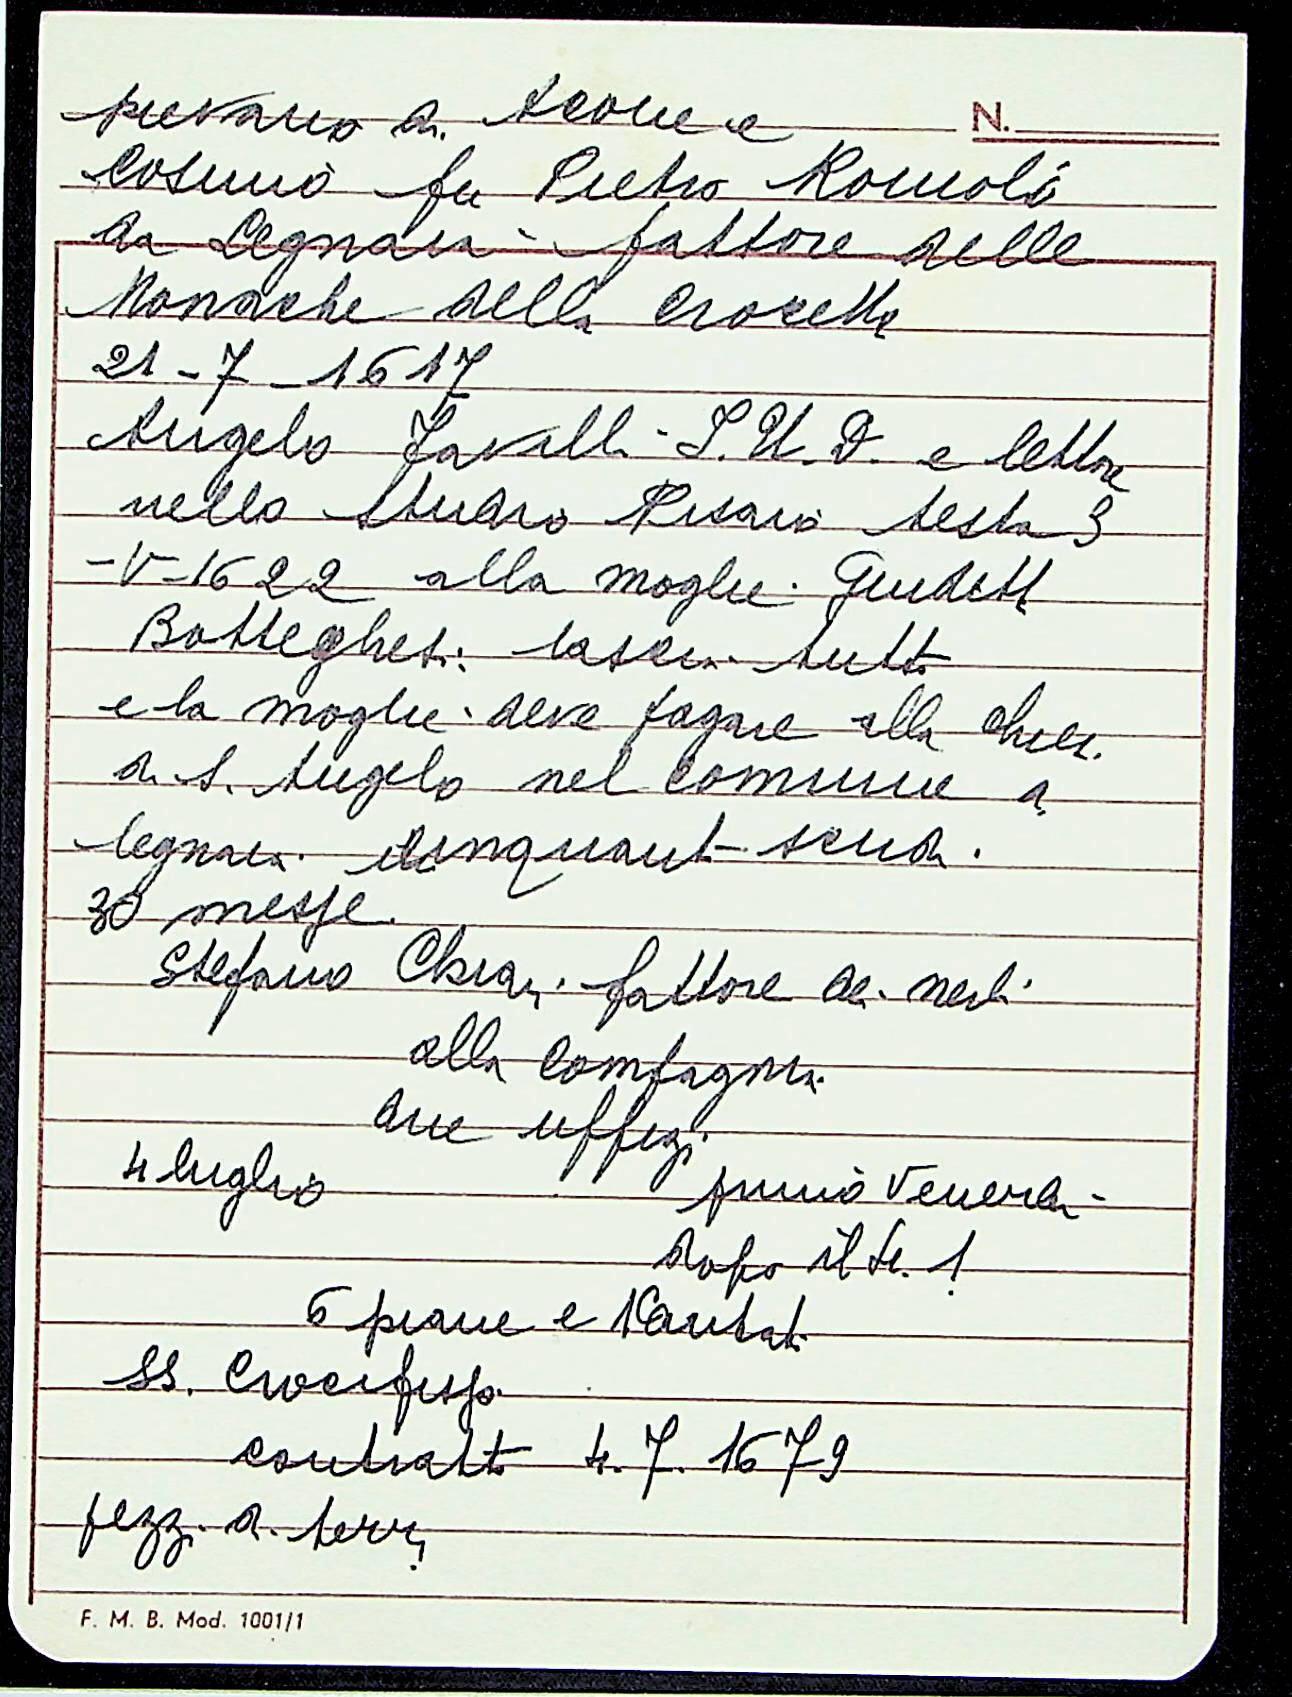 pievano di Acone e
N.
Cosimo fu Pietro Romoli
da Legnaia - fattore delle
Monache della Crocetta
21-7-1617
Angelo Favalli - I.U.D. e lettore
nello Studio Pisano testa 3
-V-1622 alla moglie. Giuditt
Botteghesi. lascia tutto
e la moglie deve pagare alla chies.
di S. Angelo nel comune a
legnaia cinquant scudi.
30 messe.
Stefano Chiari. fattore dei nerli
alla compagnia
due uffizi
4 luglio primo Venerdi -
dopo il
6 piane e 1 Cantati
SS. Crocifisso
contratto 4.7.1679
pezzi di terra
F. M. B. Mod. 1001/1